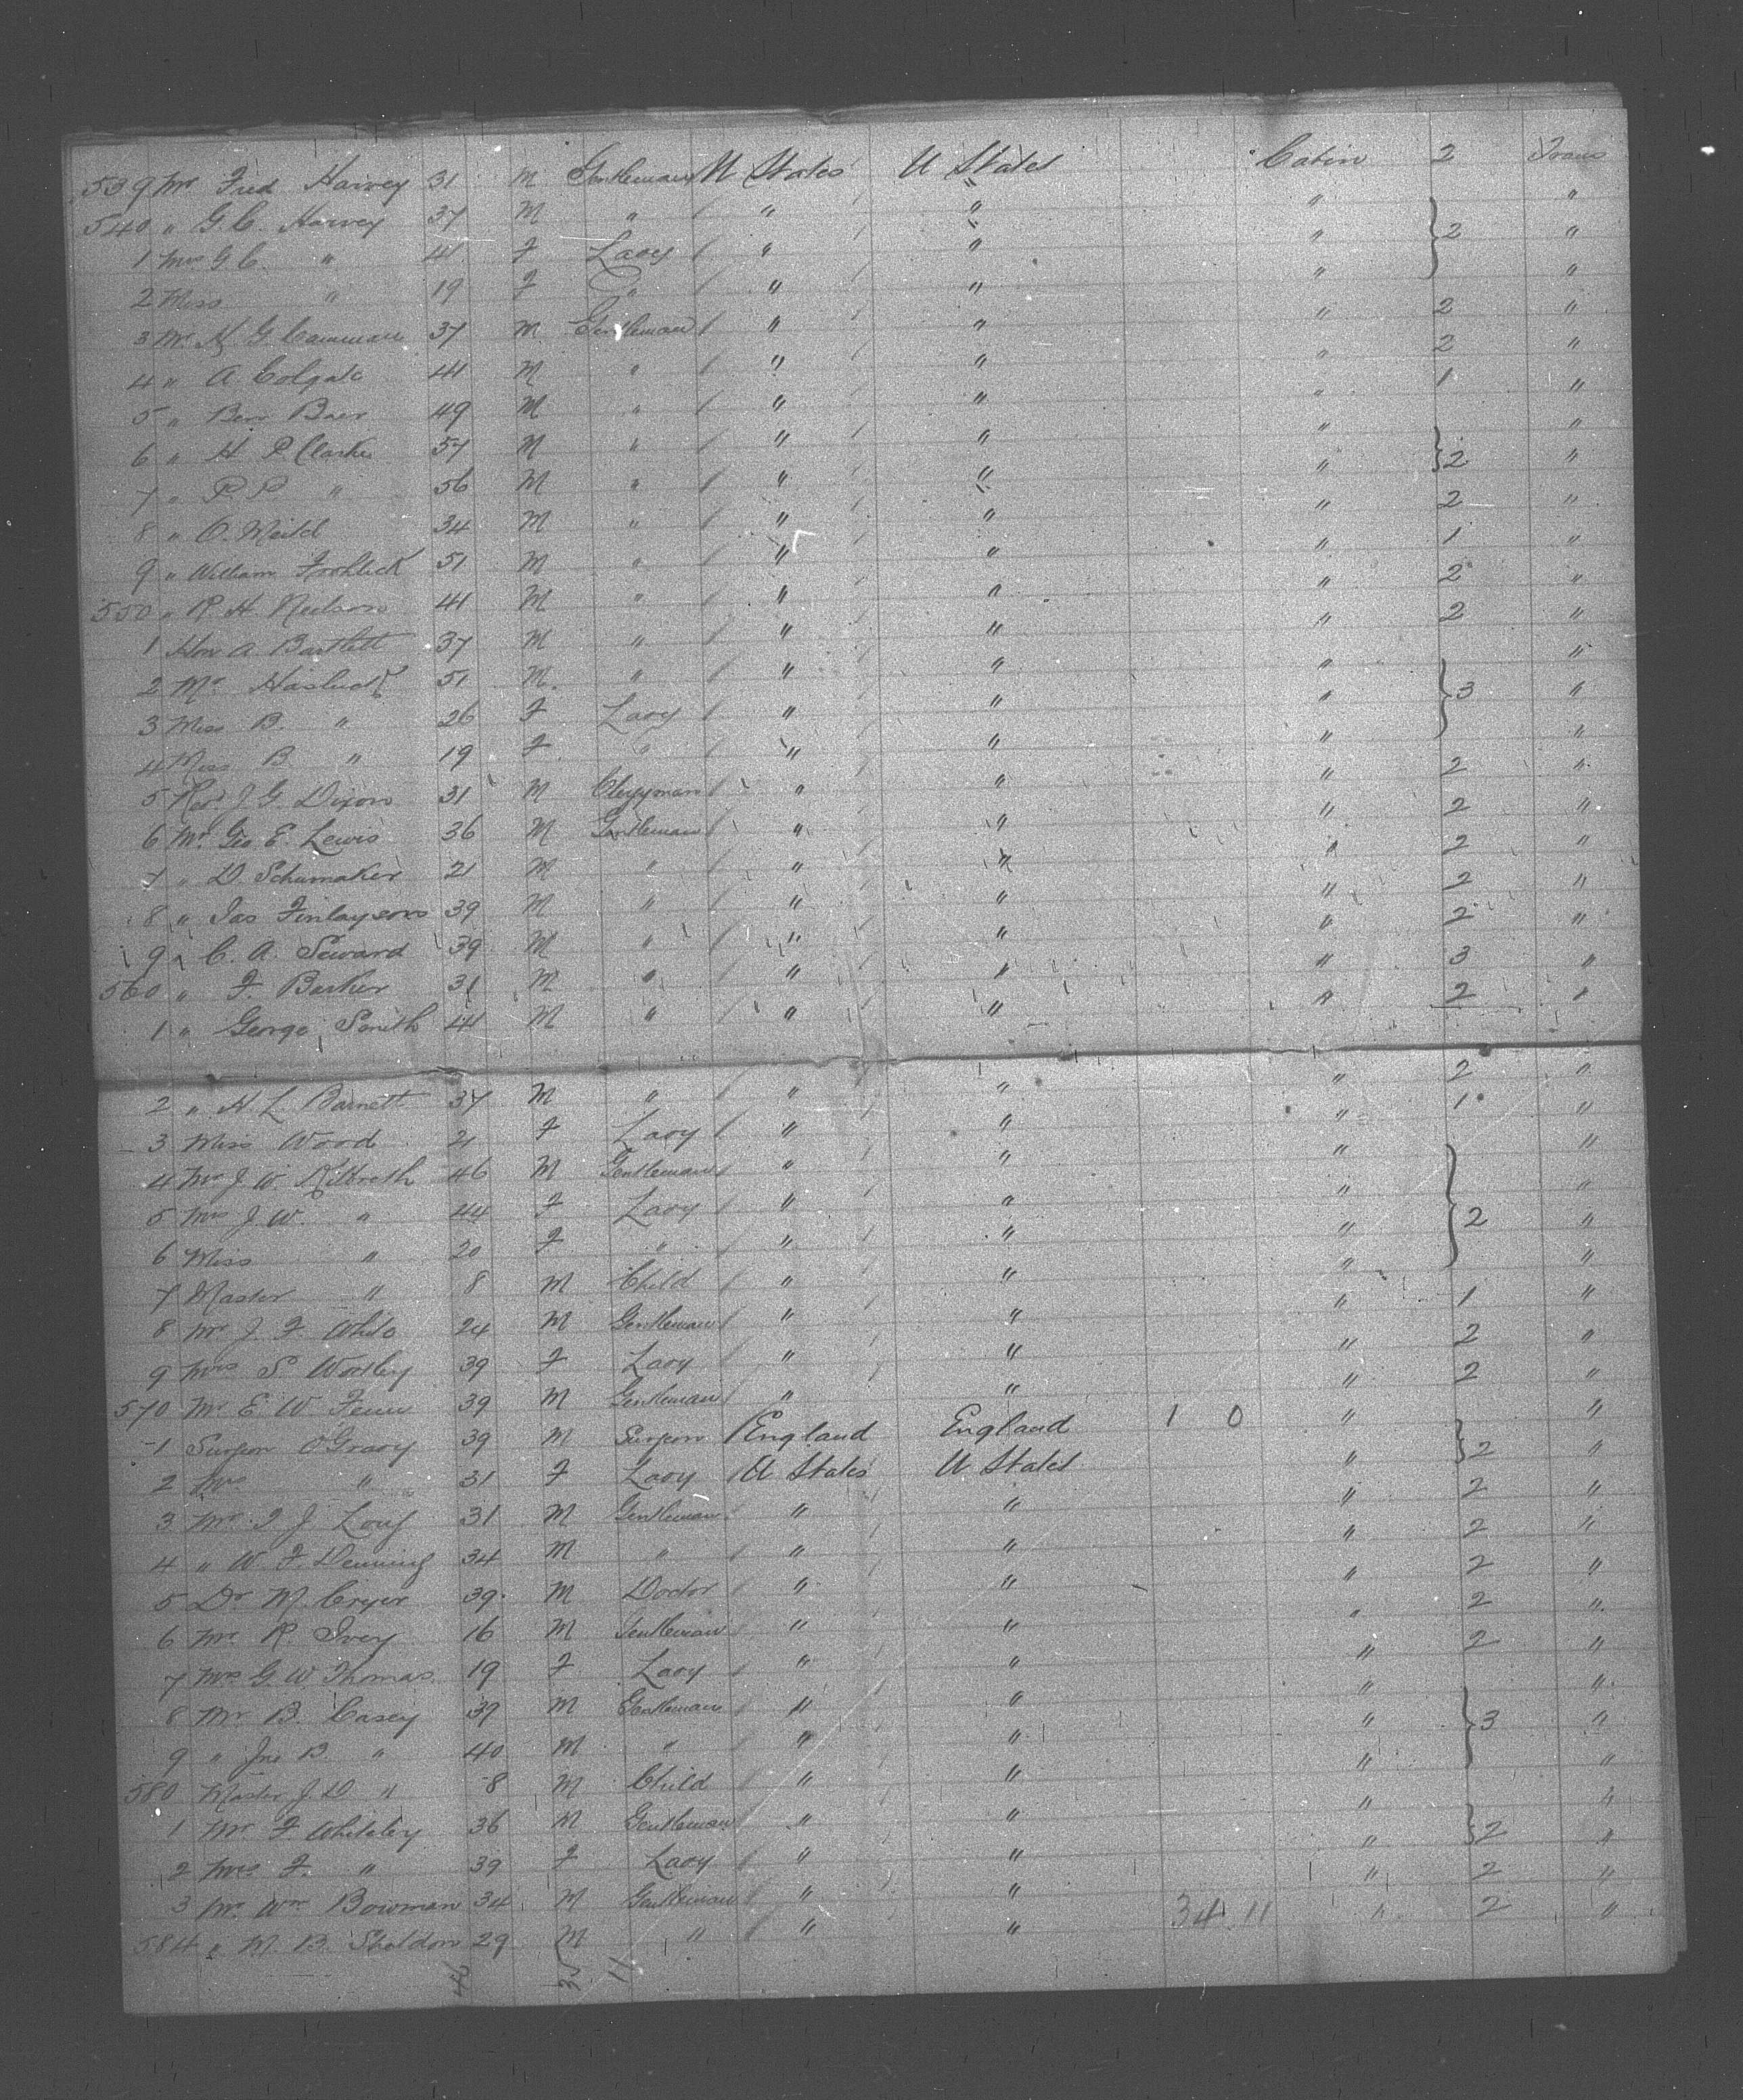 539 Mr Fred Harvey 31 M Gentleman U States U States Cabin 2 Trans
540 " G C. Harvey 37 M " " " "  "
1 Mrs G C. " 41 F Lady " " " 2 "
2 Miss " 19 F " " " " "
3 Mr H G Camman 37 M Gentleman " " " 2 "
4 " A. Colgate 44 M " " " " 2 "
5 " Benr Baer 49 M " " " " 1 "
6 " H P Clarke 57 M " " " " "
7 " P. P " 56 M " " " " 2 "
8 " O. 34 M " " " " 2 "
9 " William Frohlick 51 M " " " " 1 "
550 " R H. Neilson 41 M " " " " 2 "
1 Hon A Bartlett 37 M " " " " 2 "
2 Mr Hasluck 51 M " " " " "
3 Miss B. " 26 F Lady " " " 3 "
4 Miss B " 19 F " " " " "
5 Revd J G. Dixon 31 M Clergyman " " " 2 "
6 Mr Geo E. Lewis 36 M Gentleman " " " 2 "
7 " D. Schumaker 21 M " " " " 2 "
8 " Jas Finlayson 39 M " " " " 2 "
9 " C. A. Seward 39 M " " " " 2 "
560 " F. Barker 31 M " " " " 3 "
1 " George Smith 44 M " " " " 2 "
2 " H L. Barnett 37 M " " " " 2 "
3 Miss Wood 21 F Lady " " " 1 "
4 Mr J. W. Kilbreth 46 M Gentleman " " " "
5 Mrs J W. " 44 F Lady " " " 2 "
6 Miss " 20 F " " " " "
7 Master " 8 M Child " " " "
8 Mr J. F White 24 M Gentleman " " " 1 "
9 Mrs S Worsley 39 F Lady " " " 2 "
570 Mr E W Fenn 39 M Gentleman " " " 2 "
1 Surgeon O'Grady 39 M Surgeon England England 1 0 " "
2 Mrs " 31 F Lady U States U States " 2 "
3 Mr J J Long 31 M Gentleman " " " 2 "
4 " W. F. Denning 34 M " " " " 2 "
5 Dr M Cryer 39 M Doctor " " " 2 "
6 Mr R Ivey 16 M Gentleman " " " 2 "
7 Mrs G. W Thomas 19 F Lady " " " 2 "
8 Mr B. Casey 39 M Gentleman " " " "
9 " Jno B. " 40 M " " " " 3 "
580 Master J D " 8 M Child " " " "
1 Mr F Whiteley 36 M Gentleman " " " "
2 Mrs F. " 39 F Lady " " " 2 "
3 Mr Wm Bowman 34 M Gentleman " " " 2 "
584 " M B. Sheldon 29 M " " " 34 11 " 2 "